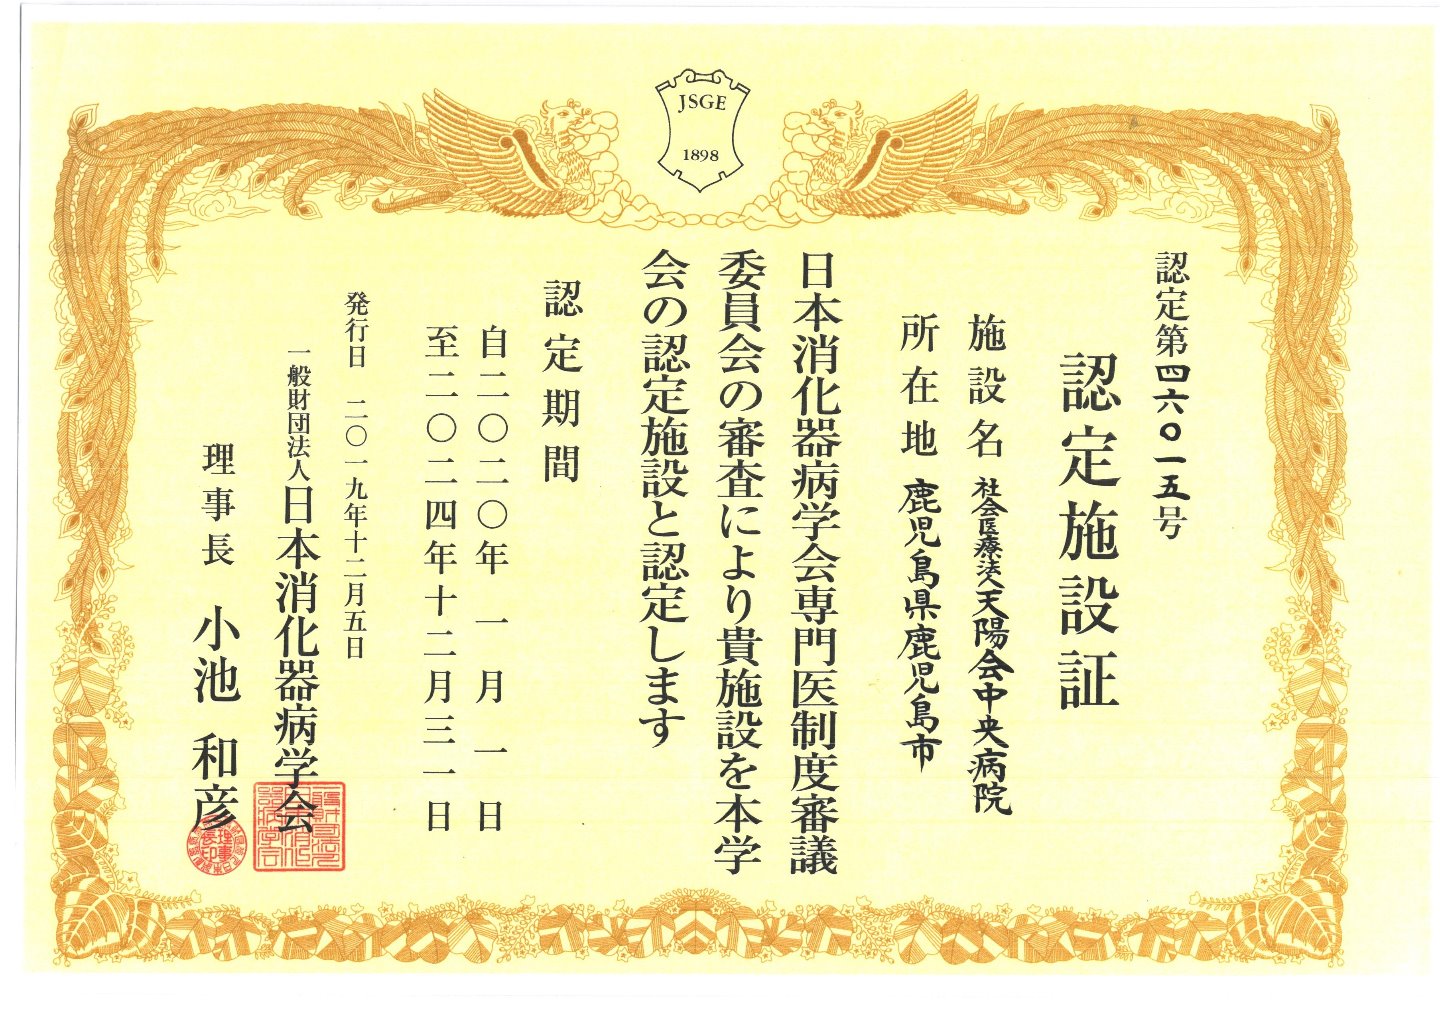 JSGE
1898
認定第四六〇一五号
認定施設証
施設名 社会医療法人天陽会中央病院
所在地 鹿児島県鹿児島市
日本消化器病学会専門医制度審議
委員会の審査により貴施設を本学
会の認定施設と認定します
認定期間
自二〇二〇年 一月 一日
至二〇二四年十二月三一日
発行日 二〇一九年十二月五日
一般財団法人日本消化器病学会
理事長 小池 和彦